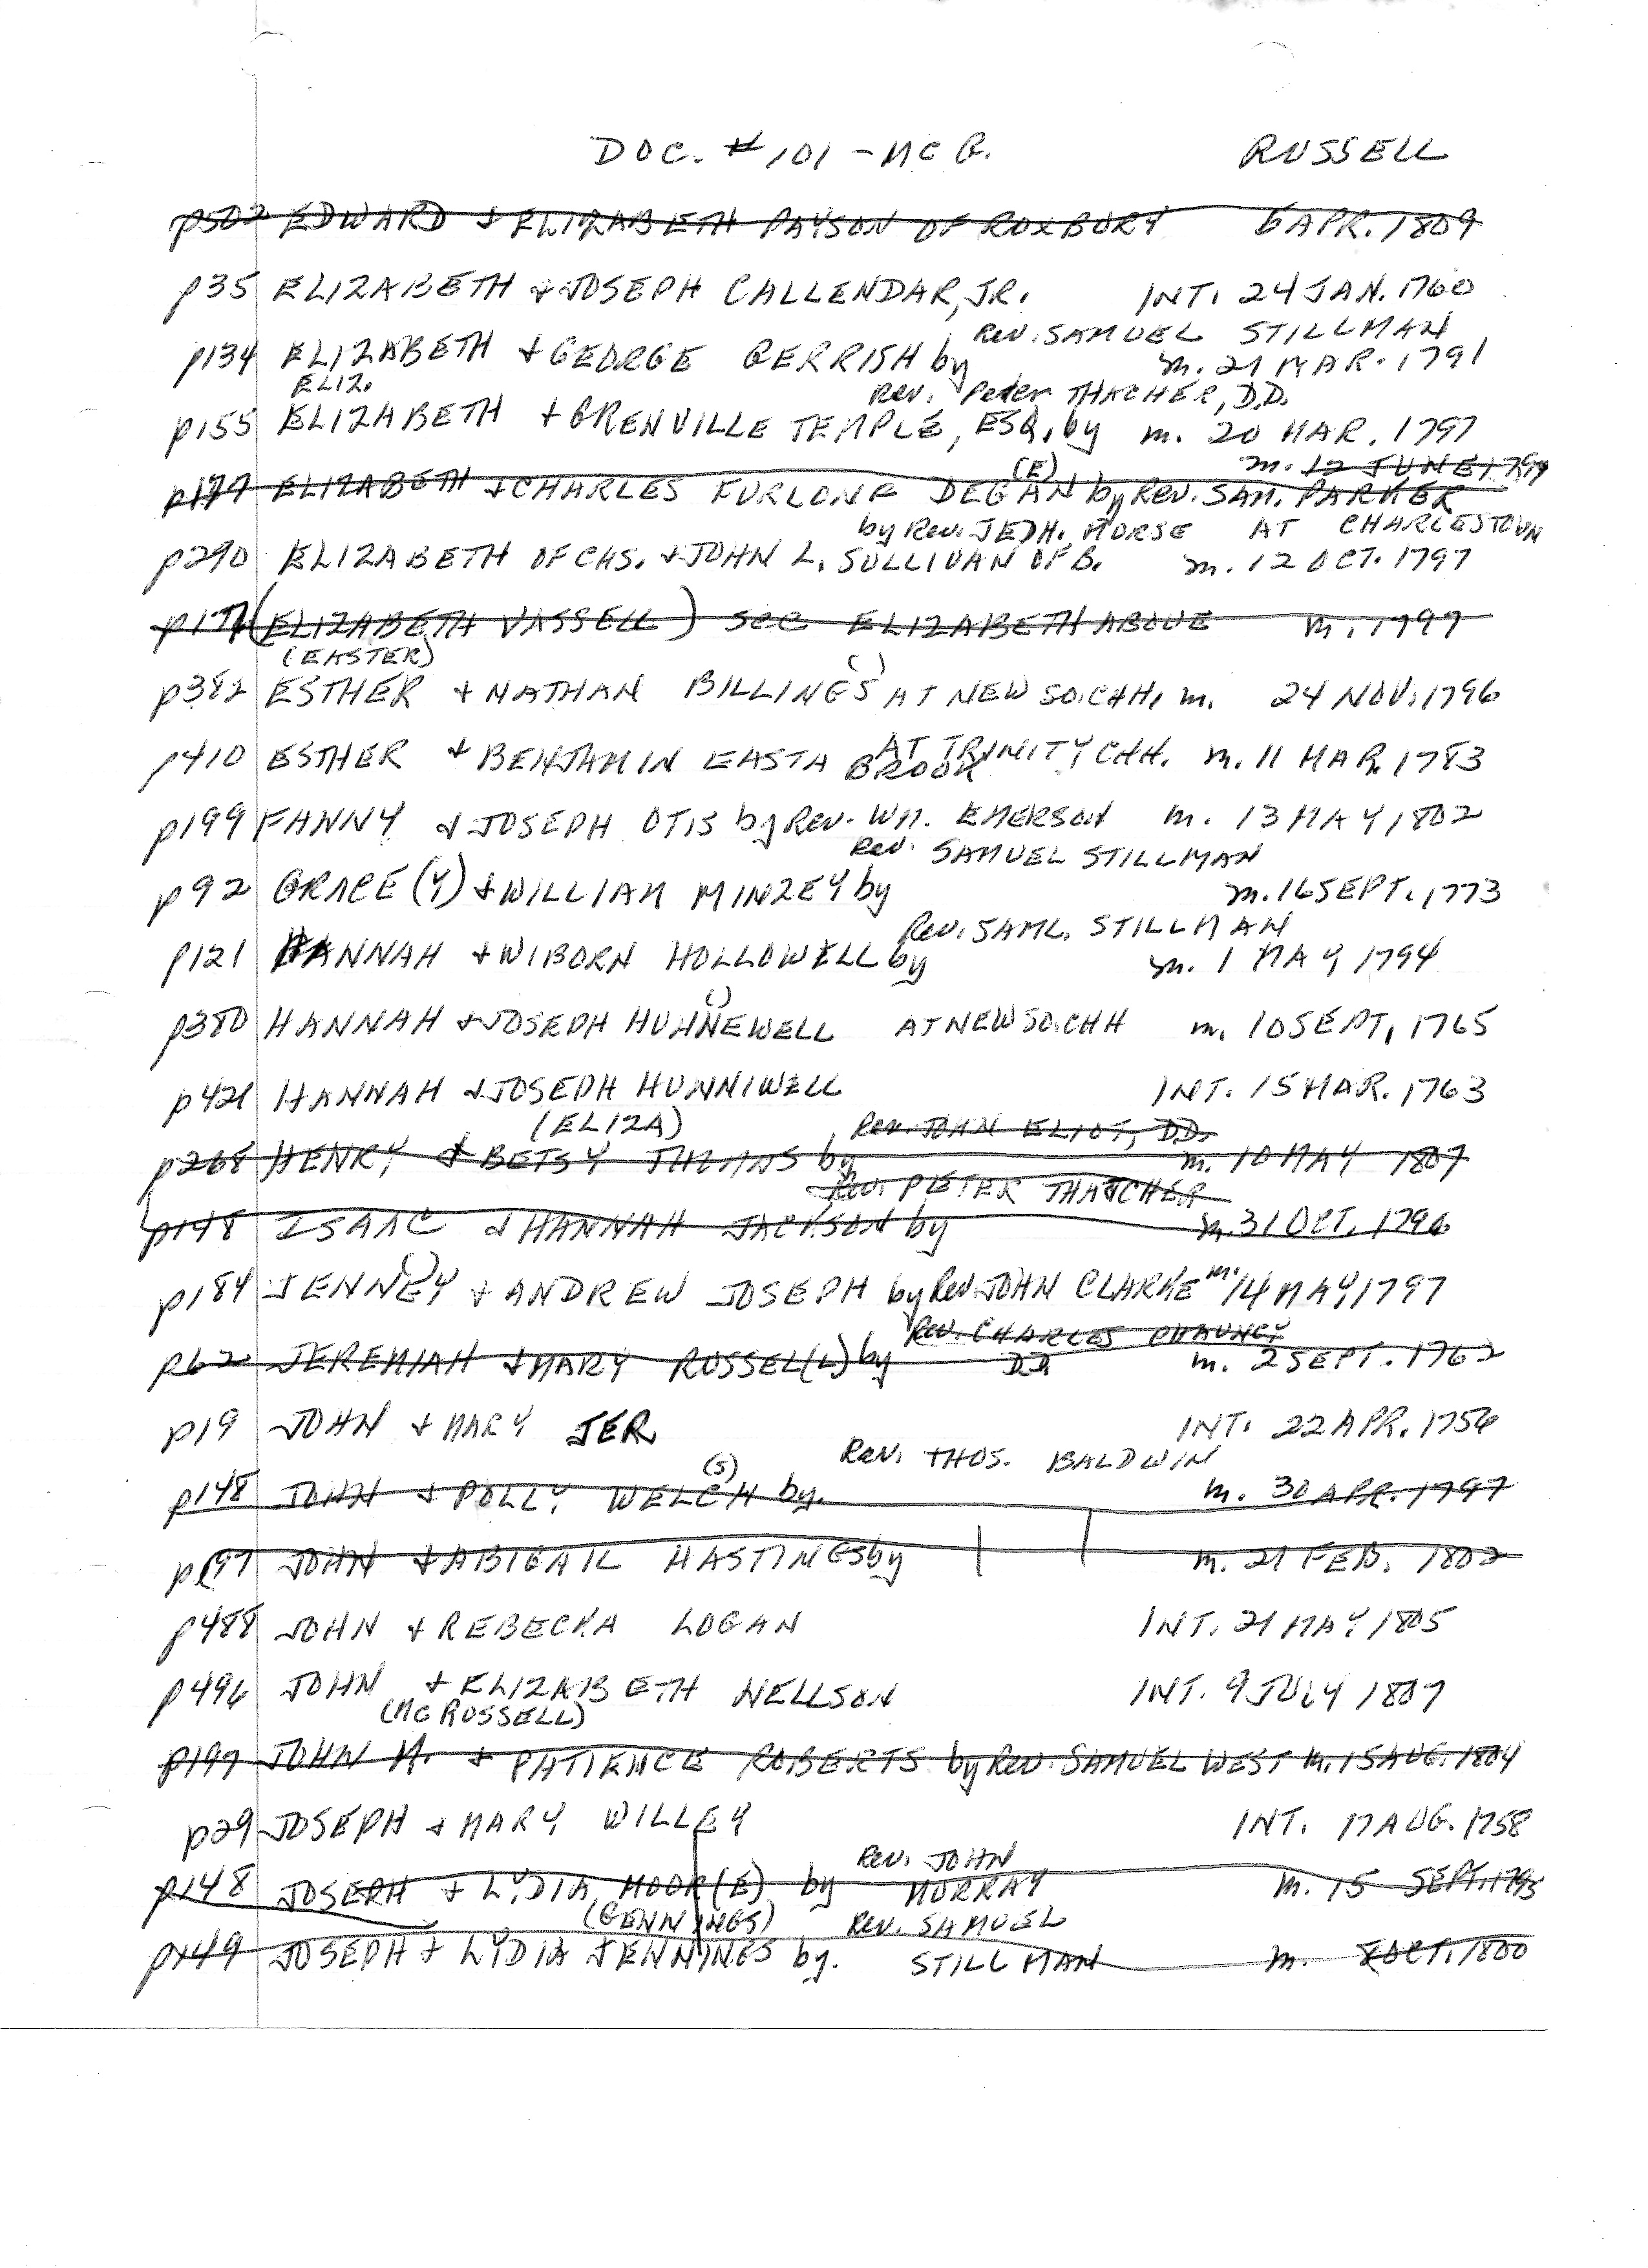 DOC. #101 - MC G. RUSSELL
p502 EDWARD & ELIZABETH PAYSON OF ROXBORY 6 APR. 1809
p35 ELIZABETH & JOSEPH CALLENDAR, JR. INT. 24 JAN. 1760
Rev. SAMUEL STILLMAN
p134 ELIZABETH & GEORGE GERRISH by m. 21 MAR. 1791
ELIZ. Rev. Peter THACHER, D.D.
p155 ELIZABETH & GRENVILLE TEMPLE, ESQ, by m. 20 MAR. 1797
(E) m. 12 JUNE 1799
p177 ELIZABETH & CHARLES FURLONG DEGAN by Rev. SAM. PARKER
by Rev. JEDH. MORSE AT CHARLESTOWN
p290 ELIZABETH OF CHS. & JOHN L. SULLIVAN OF B. m. 12 OCT. 1797
p177 (ELIZABETH VASSELL) see ELIZABETH ABOVE m. 1797
(EASTER) ( )
p382 ESTHER & NATHAN BILLINGS AT NEW SO. CHH. m. 24 NOV. 1796
p410 ESTHER & BENJAMIN EASTA BROOK AT TRINITY CHH. m. 11 MAR. 1783
p199 FANNY & JOSEPH OTIS by Rev. WM. EMERSON m. 13 MAY 1802
Rev. SAMUEL STILLMAN
p92 GRACE (Y) & WILLIAM MINZEY by m. 16 SEPT. 1773
Rev. SAML. STILLMAN
p121 HANNAH & WIBORN HOLLOWELL by m. 1 MAY 1794
( )
p380 HANNAH & JOSEPH HUHNEWELL AT NEW SO. CHH m. 10 SEPT, 1765
p421 HANNAH & JOSEPH HUNNIWELL INT. 15 MAR. 1763
(ELIZA) Rev. JOHN ELIOT, D.D.
p268 HENRY & BETSY by m. 10 MAY 1807
Rev. PETER THATCHER
p148 ISAAC & HANNAH JACKSON by m. 31 OCT. 1796
( )
p184 JENNEY & ANDREW JOSEPH by Rev. JOHN CLARKE m. 14 MAY, 1797
Rev. CHARLES CHAUNCY
p62 JEREMIAH & MARY RUSSEL(L) by D.D. m. 2 SEPT. 1762
p19 JOHN & MARY JER. INT. 22 APR. 1756
(S) Rev. THOS. BALDWIN
p148 JOHN & POLLY WELCH by. m. 30 APR. 1797
p197 JOHN & ABIGAIL HASTINGS by m. 21 FEB. 1802
p488 JOHN & REBECKA LOGAN INT. 21 MAY 1805
p496 JOHN & ELIZABETH NELLSON INT. 9 JULY 1807
(MC RUSSELL)
p197 JOHN M. & PATIENCE ROBERTS by Rev. SAMUEL WEST m. 15 AUG. 1804
p29 JOSEPH & MARY WILLEY INT. 17 AUG. 1758
Rev. JOHN
p148 JOSEPH & LYDIA MOOR(E) by MURRAY m. 15 SEPT. 1795
(GENNINGS) Rev. SAMUEL
p149 JOSEPH & LYDIA JENNINGS by. STILLMAN m. 8 OCT. 1800